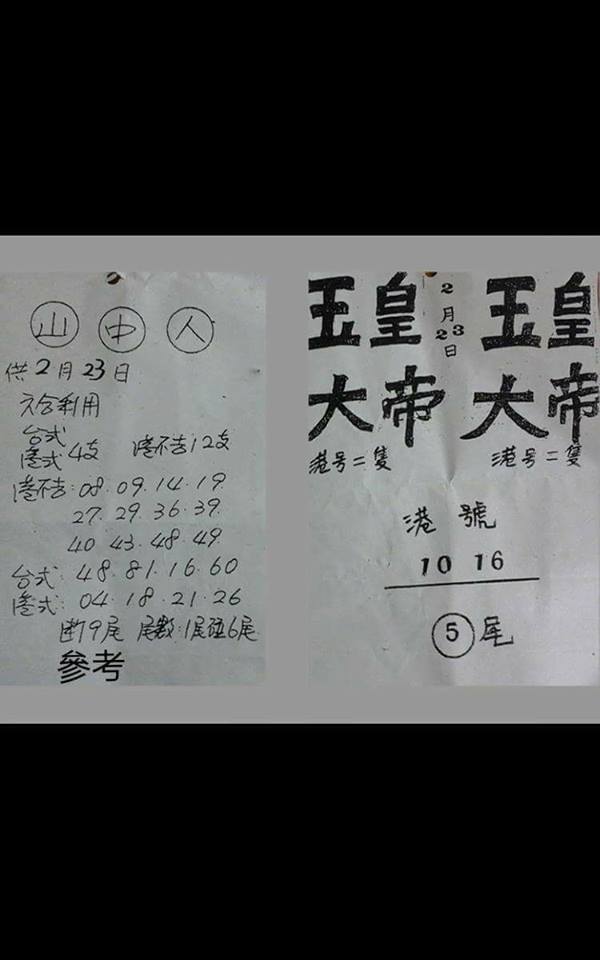 山 中 人
供2月23日
六合利用
台式
港式 4支 港不吉12支
港不吉:08.09.14.19
27.29.36.39.
40.43.48.49
台式:48.81.16.60
港式:04.18.21.26
断9尾 尾数:1尾碰6尾
參考
玉皇 2月23日 玉皇
大帝 大帝
港号二隻 港号二隻
港號
10 16
5尾